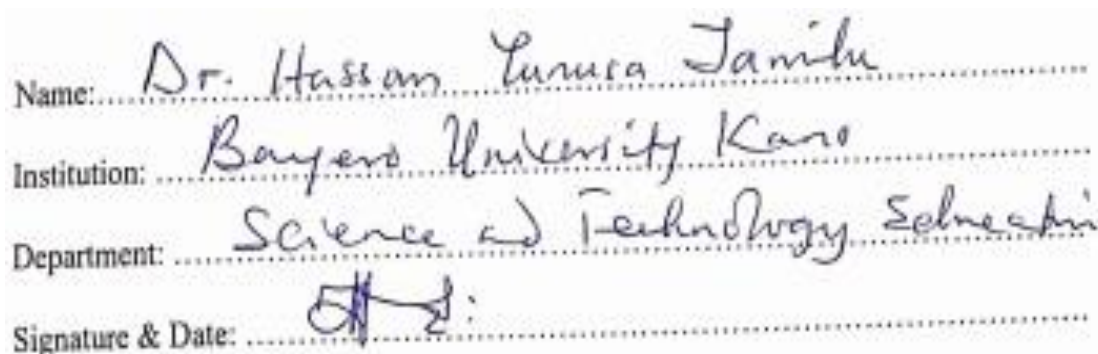 Name: Dr. Hassan Yunusa Jamilu
Institution: Bayero University Kano
Department: Science and Technology Education
Signature & Date: